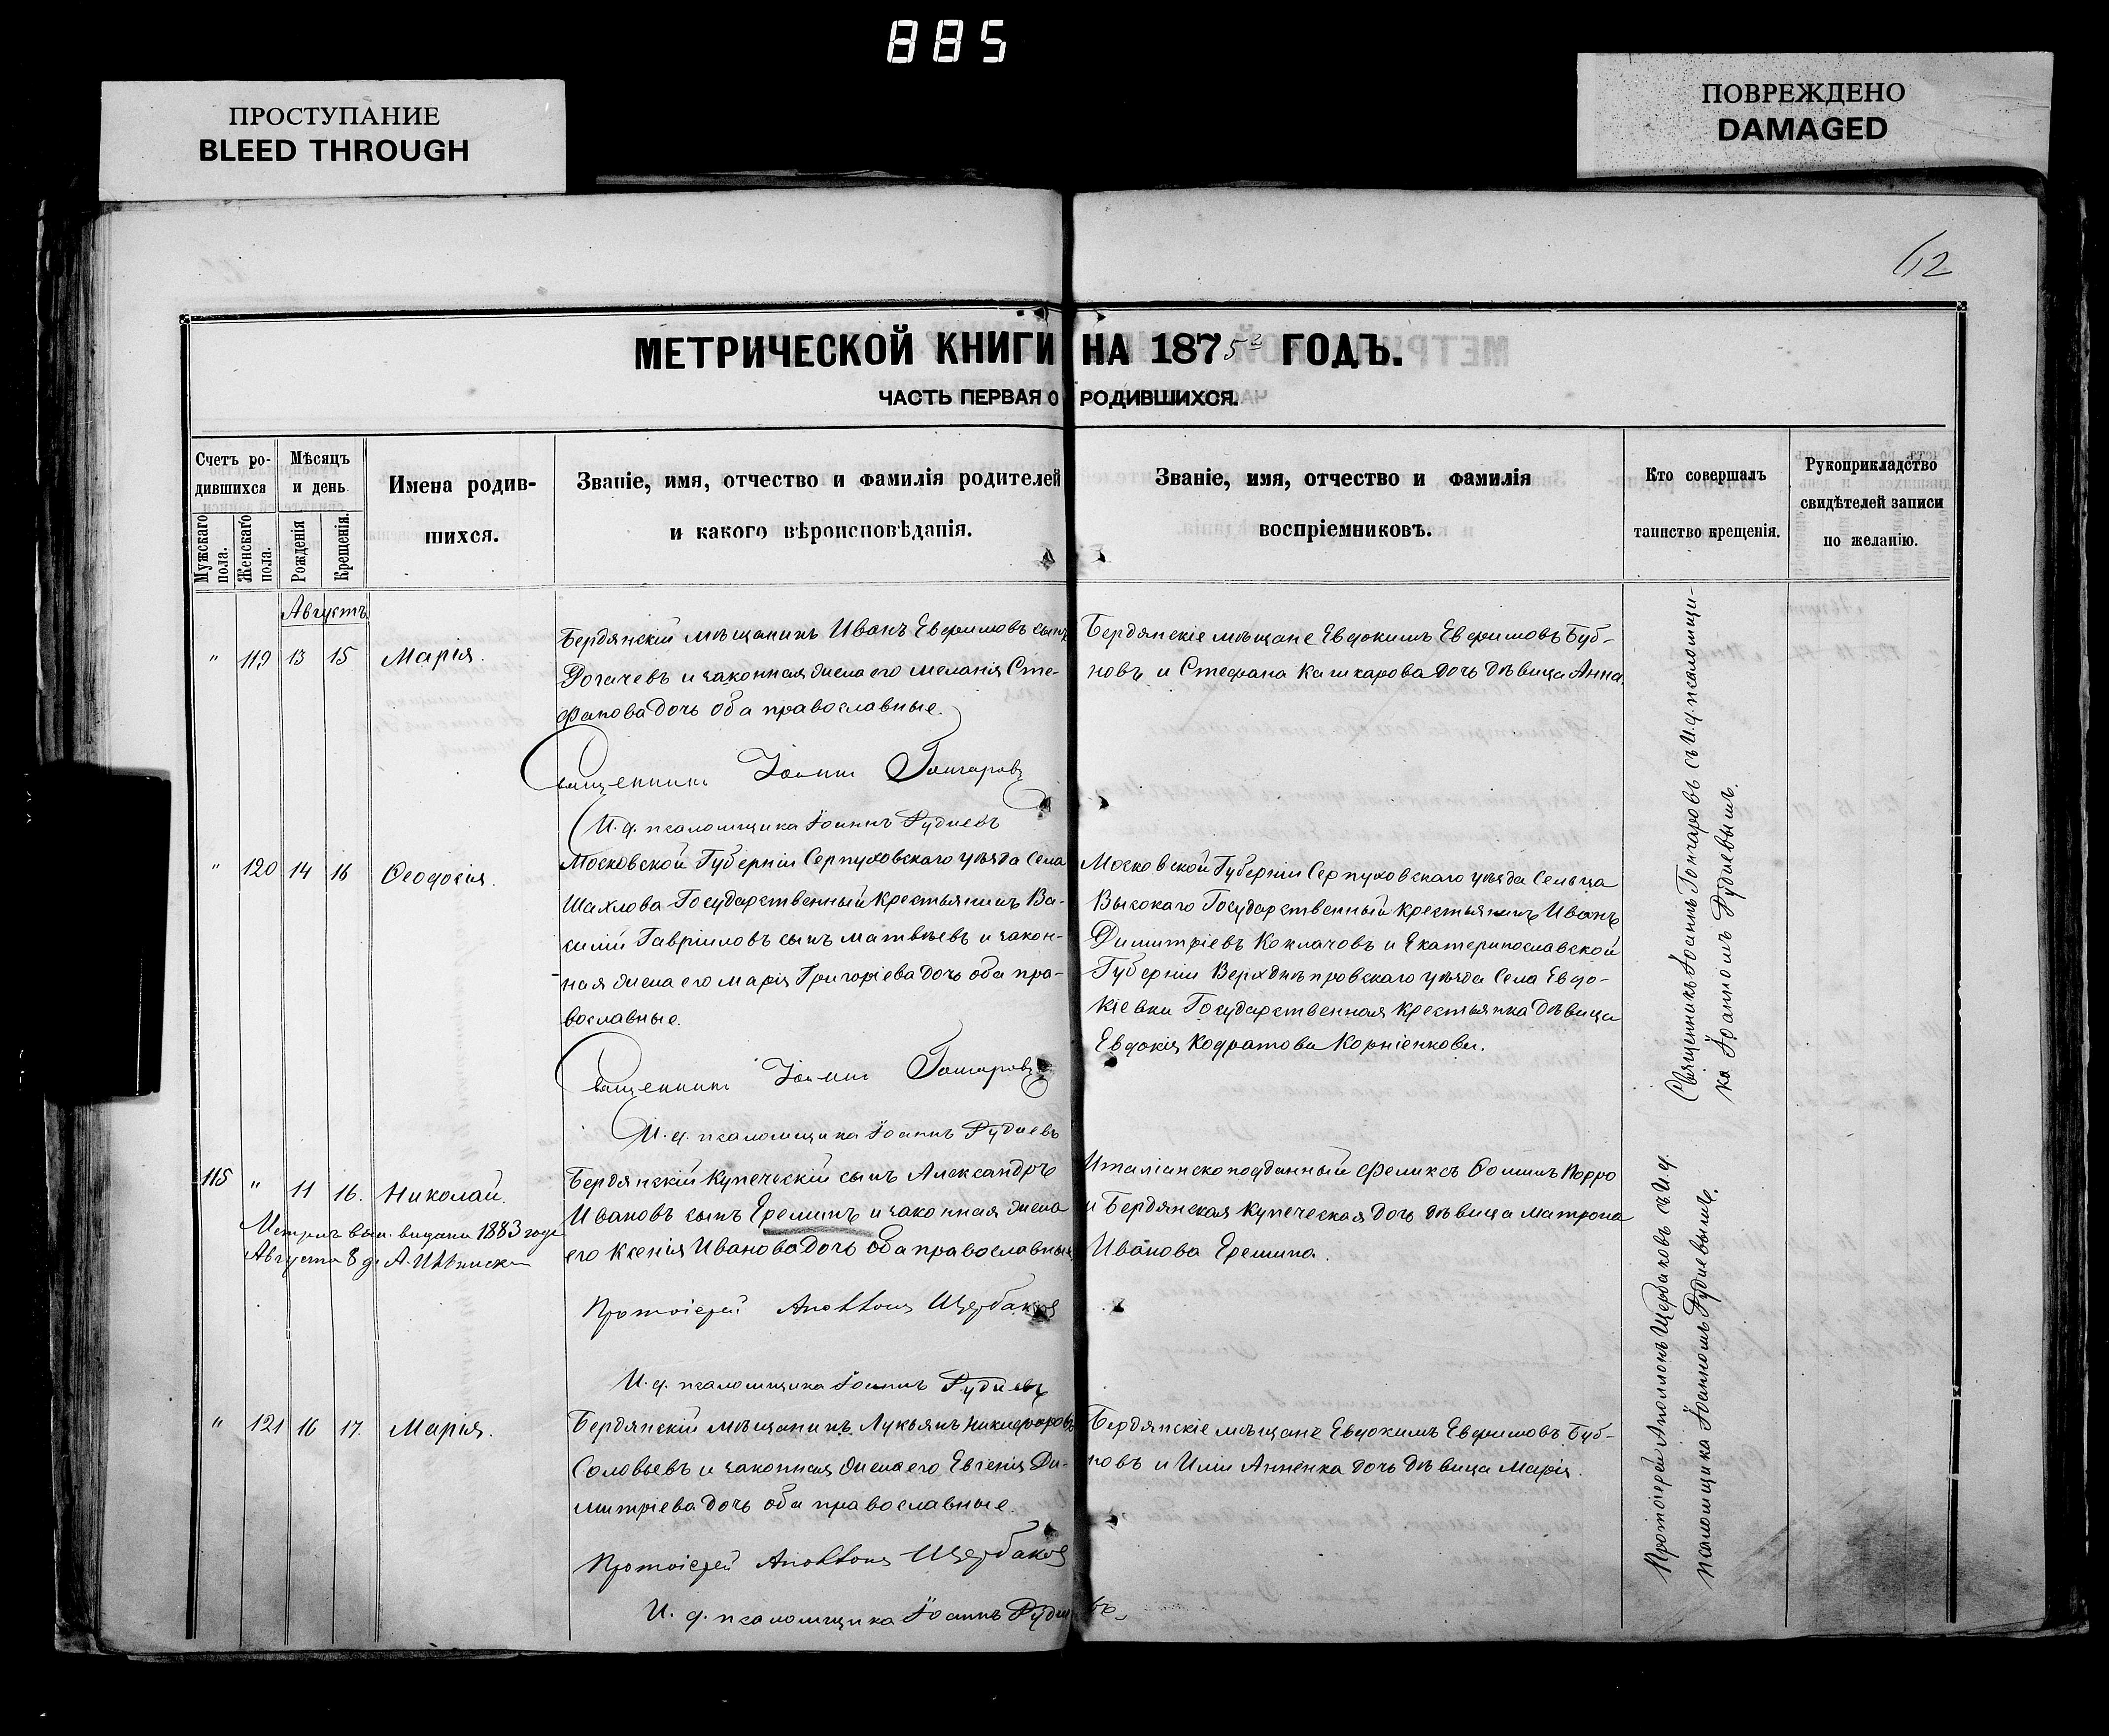 885
ПРОСТУПАНИЕ
BLEED THROUGH
ПОВРЕЖДЕНО
DAMAGED
62
МЕТРИЧЕСКОЙ КНИГИ НА 1875й ГОДЪ.
ЧАСТЬ ПЕРВАЯ О РОДИВШИХСЯ.
Счетъ ро-
дившихся
Мужскаго пола.
Женскаго пола.
Мѣсяцъ
и день
Рожденія
Крещенія.
Имена родив-
шихся.
Званіе, имя, отчество и фамилія родителей
и какого вѣроисповѣданія.
Званіе, имя, отчество и фамилія
воспріемниковъ.
Кто совершалъ
таинство крещенія.
Рукоприкладство
свидѣтелей записи
по желанію.
Августъ
" 119 13 15 Марія.
Бердянскій мѣщанинъ Иванъ Евфимовъ сынъ
Рогачевъ и законная жена его Меланія Сте-
фанова дочь оба православные.
Священникъ Іоаннъ Гончаровъ
И. д. псаломщика Іоаннъ Рудневъ
Бердянскіе мѣщане Евдокимъ Евфимовъ Буб-
новъ и Стефана Кашкарова дочь дѣвица Анна.
" 120 14 16 Ѳеодосія.
Московской Губерніи Серпуховскаго уѣзда Села
Шахлова Государственный крестьянинъ Ва-
силій Гавріиловъ сынъ Матвѣевъ и закон-
ная жена его Марія Григоріева дочь оба пра-
вославные.
Священникъ Іоаннъ Гончаровъ
И. д. псаломщика Іоаннъ Рудневъ
Московской Губерніи Серпуховскаго уѣзда Сельца
Высокаго Государственный крестьянинъ Иванъ
Димитріевъ Коклачовъ и Екатеринославской
Губерніи Верхднѣпровскаго уѣзда Села Евдо-
кіевки Государственная крестьянка дѣвица
Евдокія Кодратова Корніенкова.
Священникъ Іоаннъ Гончаровъ съ И. д. псаломщи-
ка Іоанномъ Рудневымъ.
115 " 11 16. Николай.
Метрич. вып. выдана 1883 года
Августа 8 д. А.
Бердянскій Купеческій сынъ Александръ
Ивановъ сынъ Ереминъ и законная жена
его Ксенія Иванова дочь оба православные
Протоіерей Аполлонъ Щербаковъ
И. д. псаломщика Іоаннъ Рудневъ
Италіанскоподданный Феликсъ Ѳоминъ Порро
и Бердянская Купеческая дочь дѣвица Матрона
Иванова Еремина.
" 121 16 17. Марія.
Бердянскій мѣщанинъ Лукьянъ Никифоровъ
Соловьевъ и законная жена его Евгенія Ди-
митріева дочь оба православные.
Протоіерей Аполлонъ Щербаковъ
И. д. псаломщика Іоаннъ Рудневъ
Бердянскіе мѣщане Евдокимъ Евфимовъ Буб-
новъ и Иліи Анненка дочь дѣвица Марія.
Протоіерей Аполлонъ Щербаковъ съ И. д.
псаломщика Іоанномъ Рудневымъ.